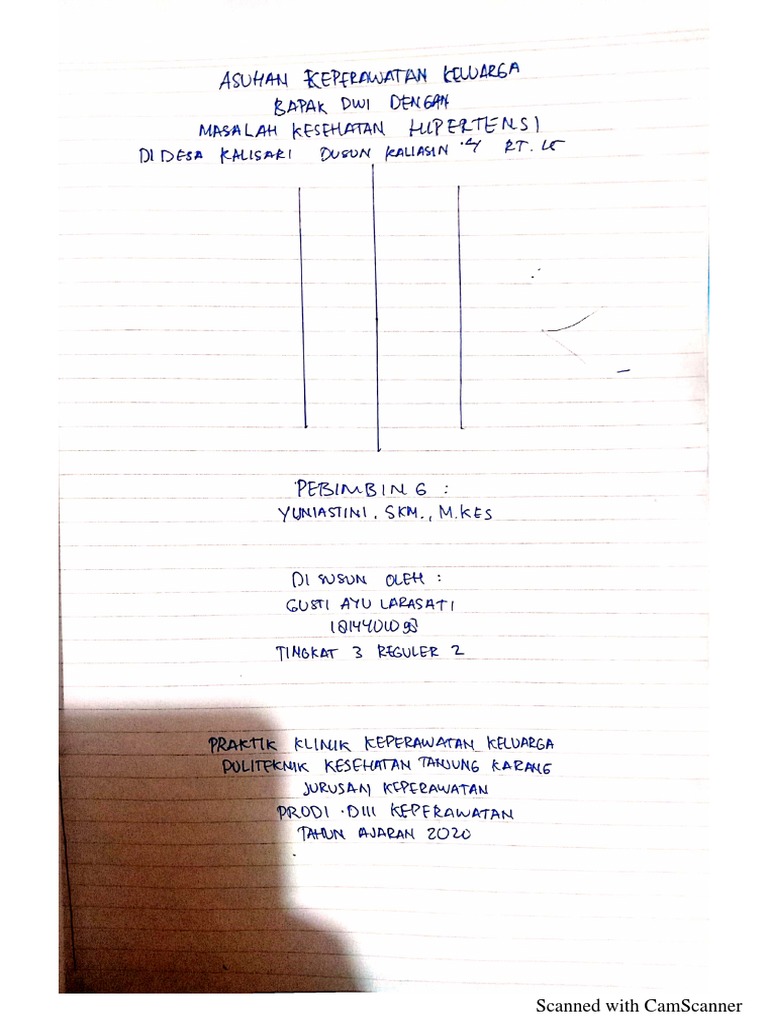 ASUHAN KEPERAWATAN KELUARGA
BAPAK DWI DENGAN
MASALAH KESEHATAN HIPERTENSI
DI DESA KALISARI DUSUN KALIASIN RT.
PEBIMBING :
YUNIASTINI. SKM., M.KES
DI SUSUN OLEH :
GUSTI AYU LARASATI
TINGKAT 3 REGULER 2
PRAKTIK KLINIK KEPERAWATAN KELUARGA
POLITEKNIK KESEHATAN TANJUNG KARANG
JURUSAN KEPERAWATAN
PRODI DIII KEPERAWATAN
TAHUN AJARAN 2020
Scanned with CamScanner